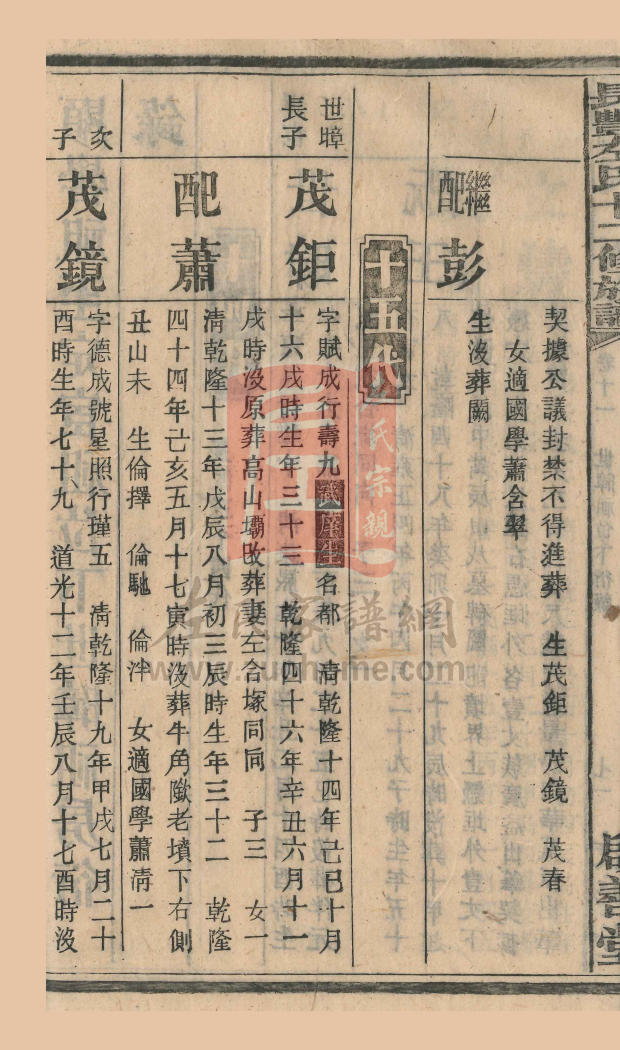 長豐李氏十二修族譜
卷十一
世障
啟善堂
契據公議封禁不得進葬 生茂鉅 茂鏡 茂春
女適國學蕭含翠
繼配彭
生沒葬闕
十五代
世暲長子
茂鉅
字賦成行壽九 武庠生 名都 清乾隆十四年己巳十月
十六戌時生年三十三 乾隆四十六年辛丑六月十一
戌時沒原葬高山壩改葬妻左合塚同向 子三 女一
配蕭
清乾隆十三年戊辰八月初三辰時生年三十二 乾隆
四十四年己亥五月十七寅時沒葬牛角歐老墳下右側
丑山未 生倫擇 倫馳 倫泮 女適國學蕭清一
次子
茂鏡
字德成號星照行瑾五 清乾隆十九年甲戌七月二十
酉時生年七十九 道光十二年壬辰八月十七酉時沒
氏宗親
家譜網